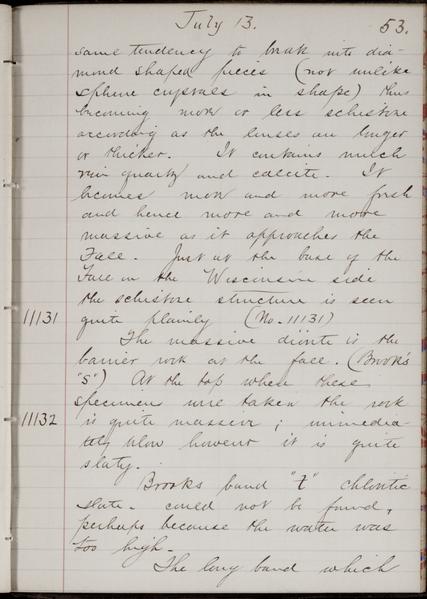 July 13. 53.
same tendency to break into dia-
mond shaped pieces (not unlike
sphene crystals in shape) thus
becoming more or less schistose
according as the lenses are longer
or thicker. It contains much
vein quartz and calcite. It
becomes more and more fresh
and hence more and more
massive as it approaches the
Fall. Just at the base of the
Fall on the Wisconsin side
the schistose structure is seen
11131 quite plainly (No. 11131)
The massive diorite is the
barrier rock at the fall. (Brook's
"S") At the top where these
specimens were taken the rock
11132 is quite massive; immedia-
tely below however it is quite
slaty.
Brooks band "t" chloritic
slate - could not be found,
perhaps because the water was
too high.
The long band which